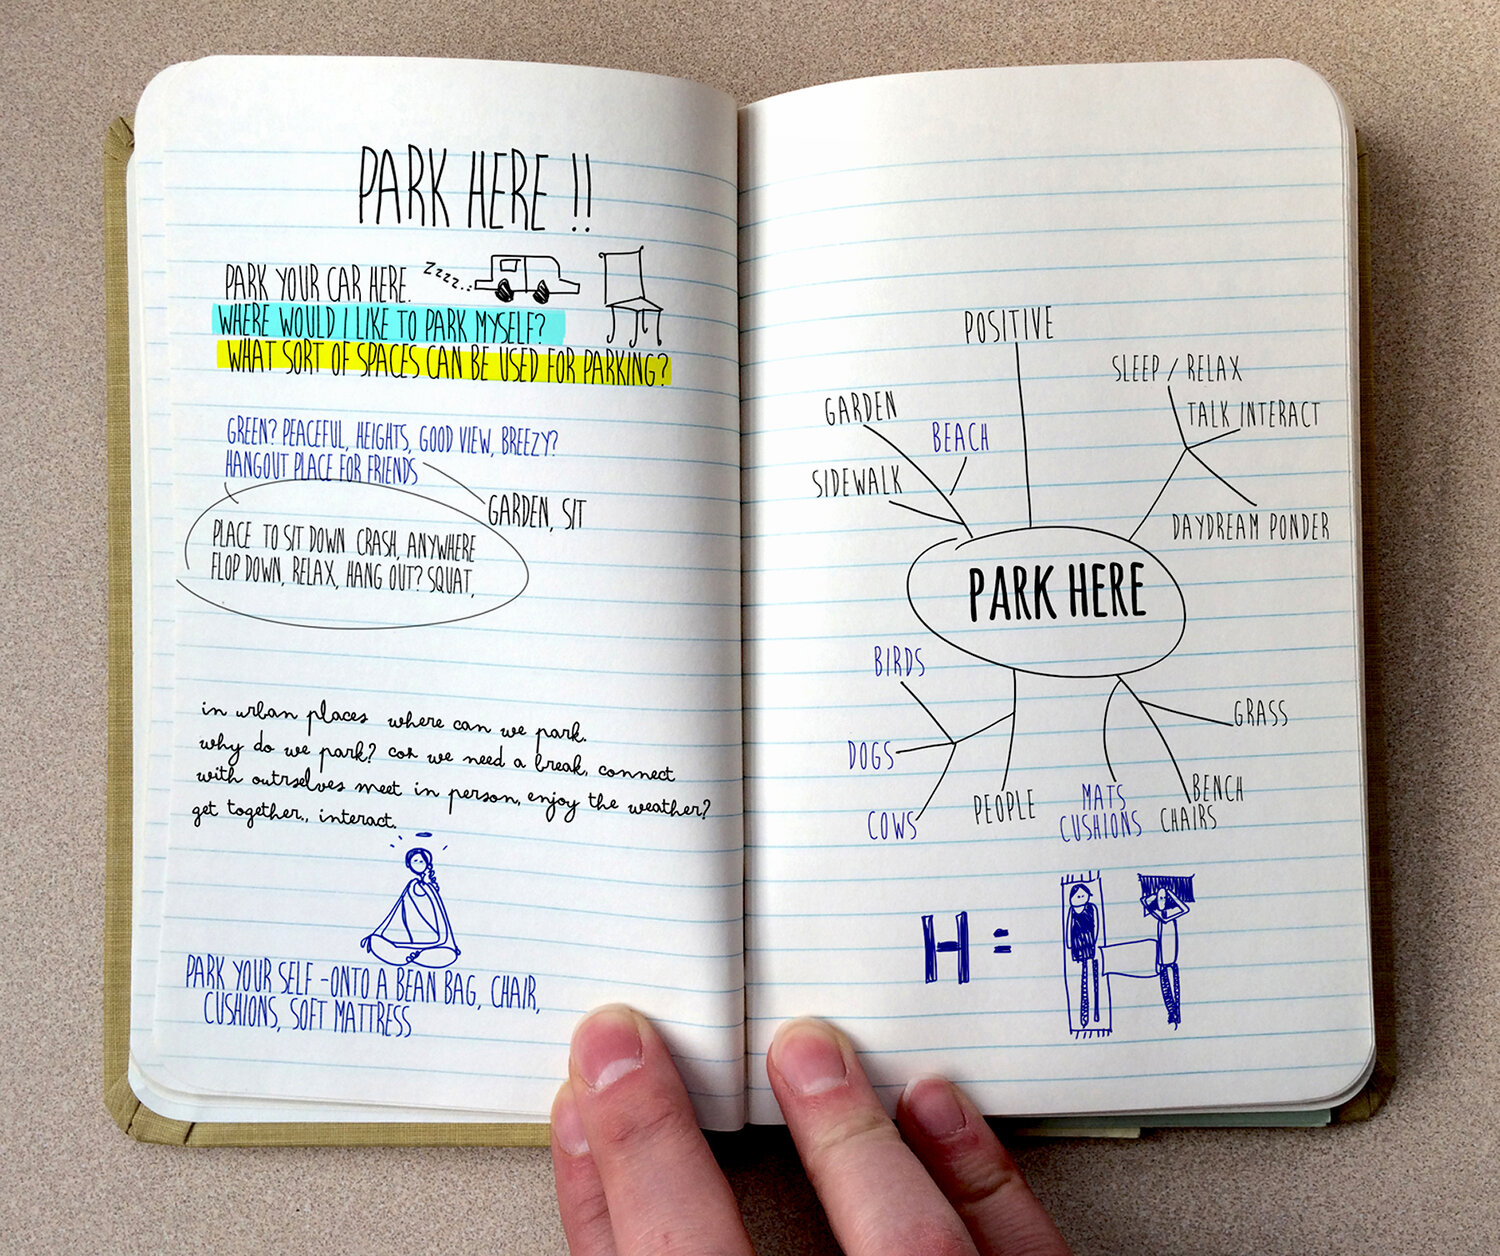 PARK HERE !!
PARK YOUR CAR HERE.
zzzz..
WHERE WOULD I LIKE TO PARK MYSELF?
WHAT SORT OF SPACES CAN BE USED FOR PARKING?
GREEN? PEACEFUL, HEIGHTS, GOOD VIEW, BREEZY?
HANGOUT PLACE FOR FRIENDS
GARDEN, SIT
PLACE TO SIT DOWN CRASH, ANYWHERE
FLOP DOWN, RELAX, HANG OUT? SQUAT,
in urban places where can we park.
why do we park? cos we need a break, connect
with outrselves meet in person, enjoy the weather?
get together., interact.
PARK YOUR SELF -ONTO A BEAN BAG, CHAIR,
CUSHIONS, SOFT MATTRESS
POSITIVE
SLEEP / RELAX
GARDEN
TALK INTERACT
BEACH
SIDEWALK
DAYDREAM PONDER
PARK HERE
BIRDS
GRASS
DOGS
PEOPLE
MATS
CUSHIONS
BENCH
CHAIRS
COWS
H =